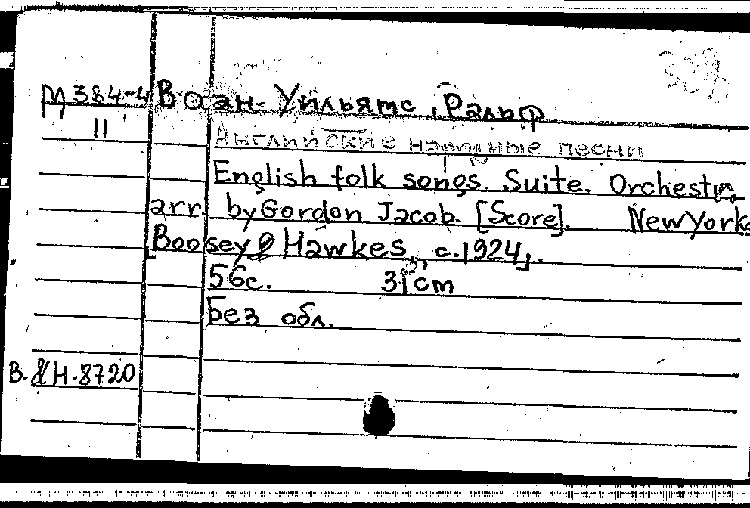 М384-4 Воан-Уильямс, Ральф
II
Английские народные песни
English folk songs. Suite. Orchestr.
arr. by Gordon Jacob. [Score]. New York,
[Boosey & Hawkes, c.1924].
56с. 31 cm
Без обл.
B.&H.8720